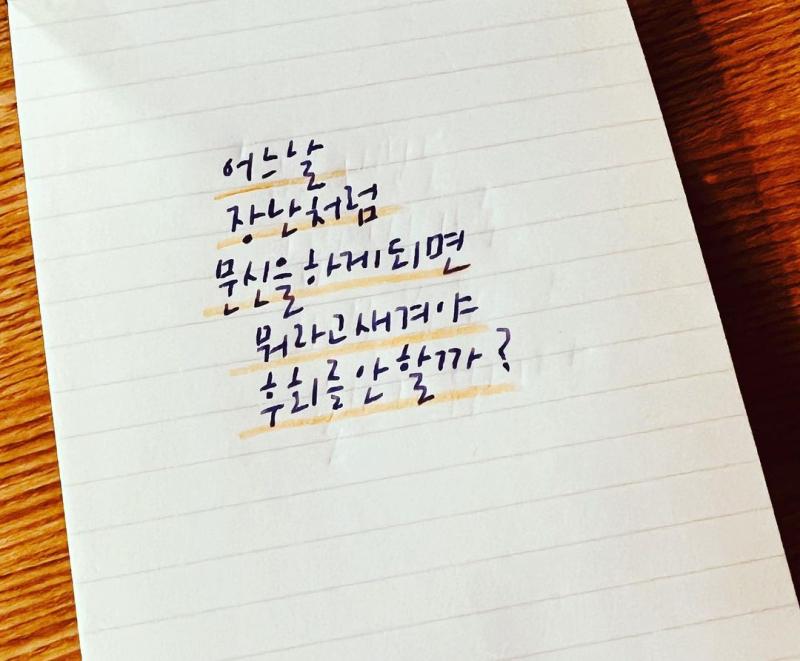 어느날
장난처럼
문신을하게되면
뭐라고새겨야
후회를안할까?